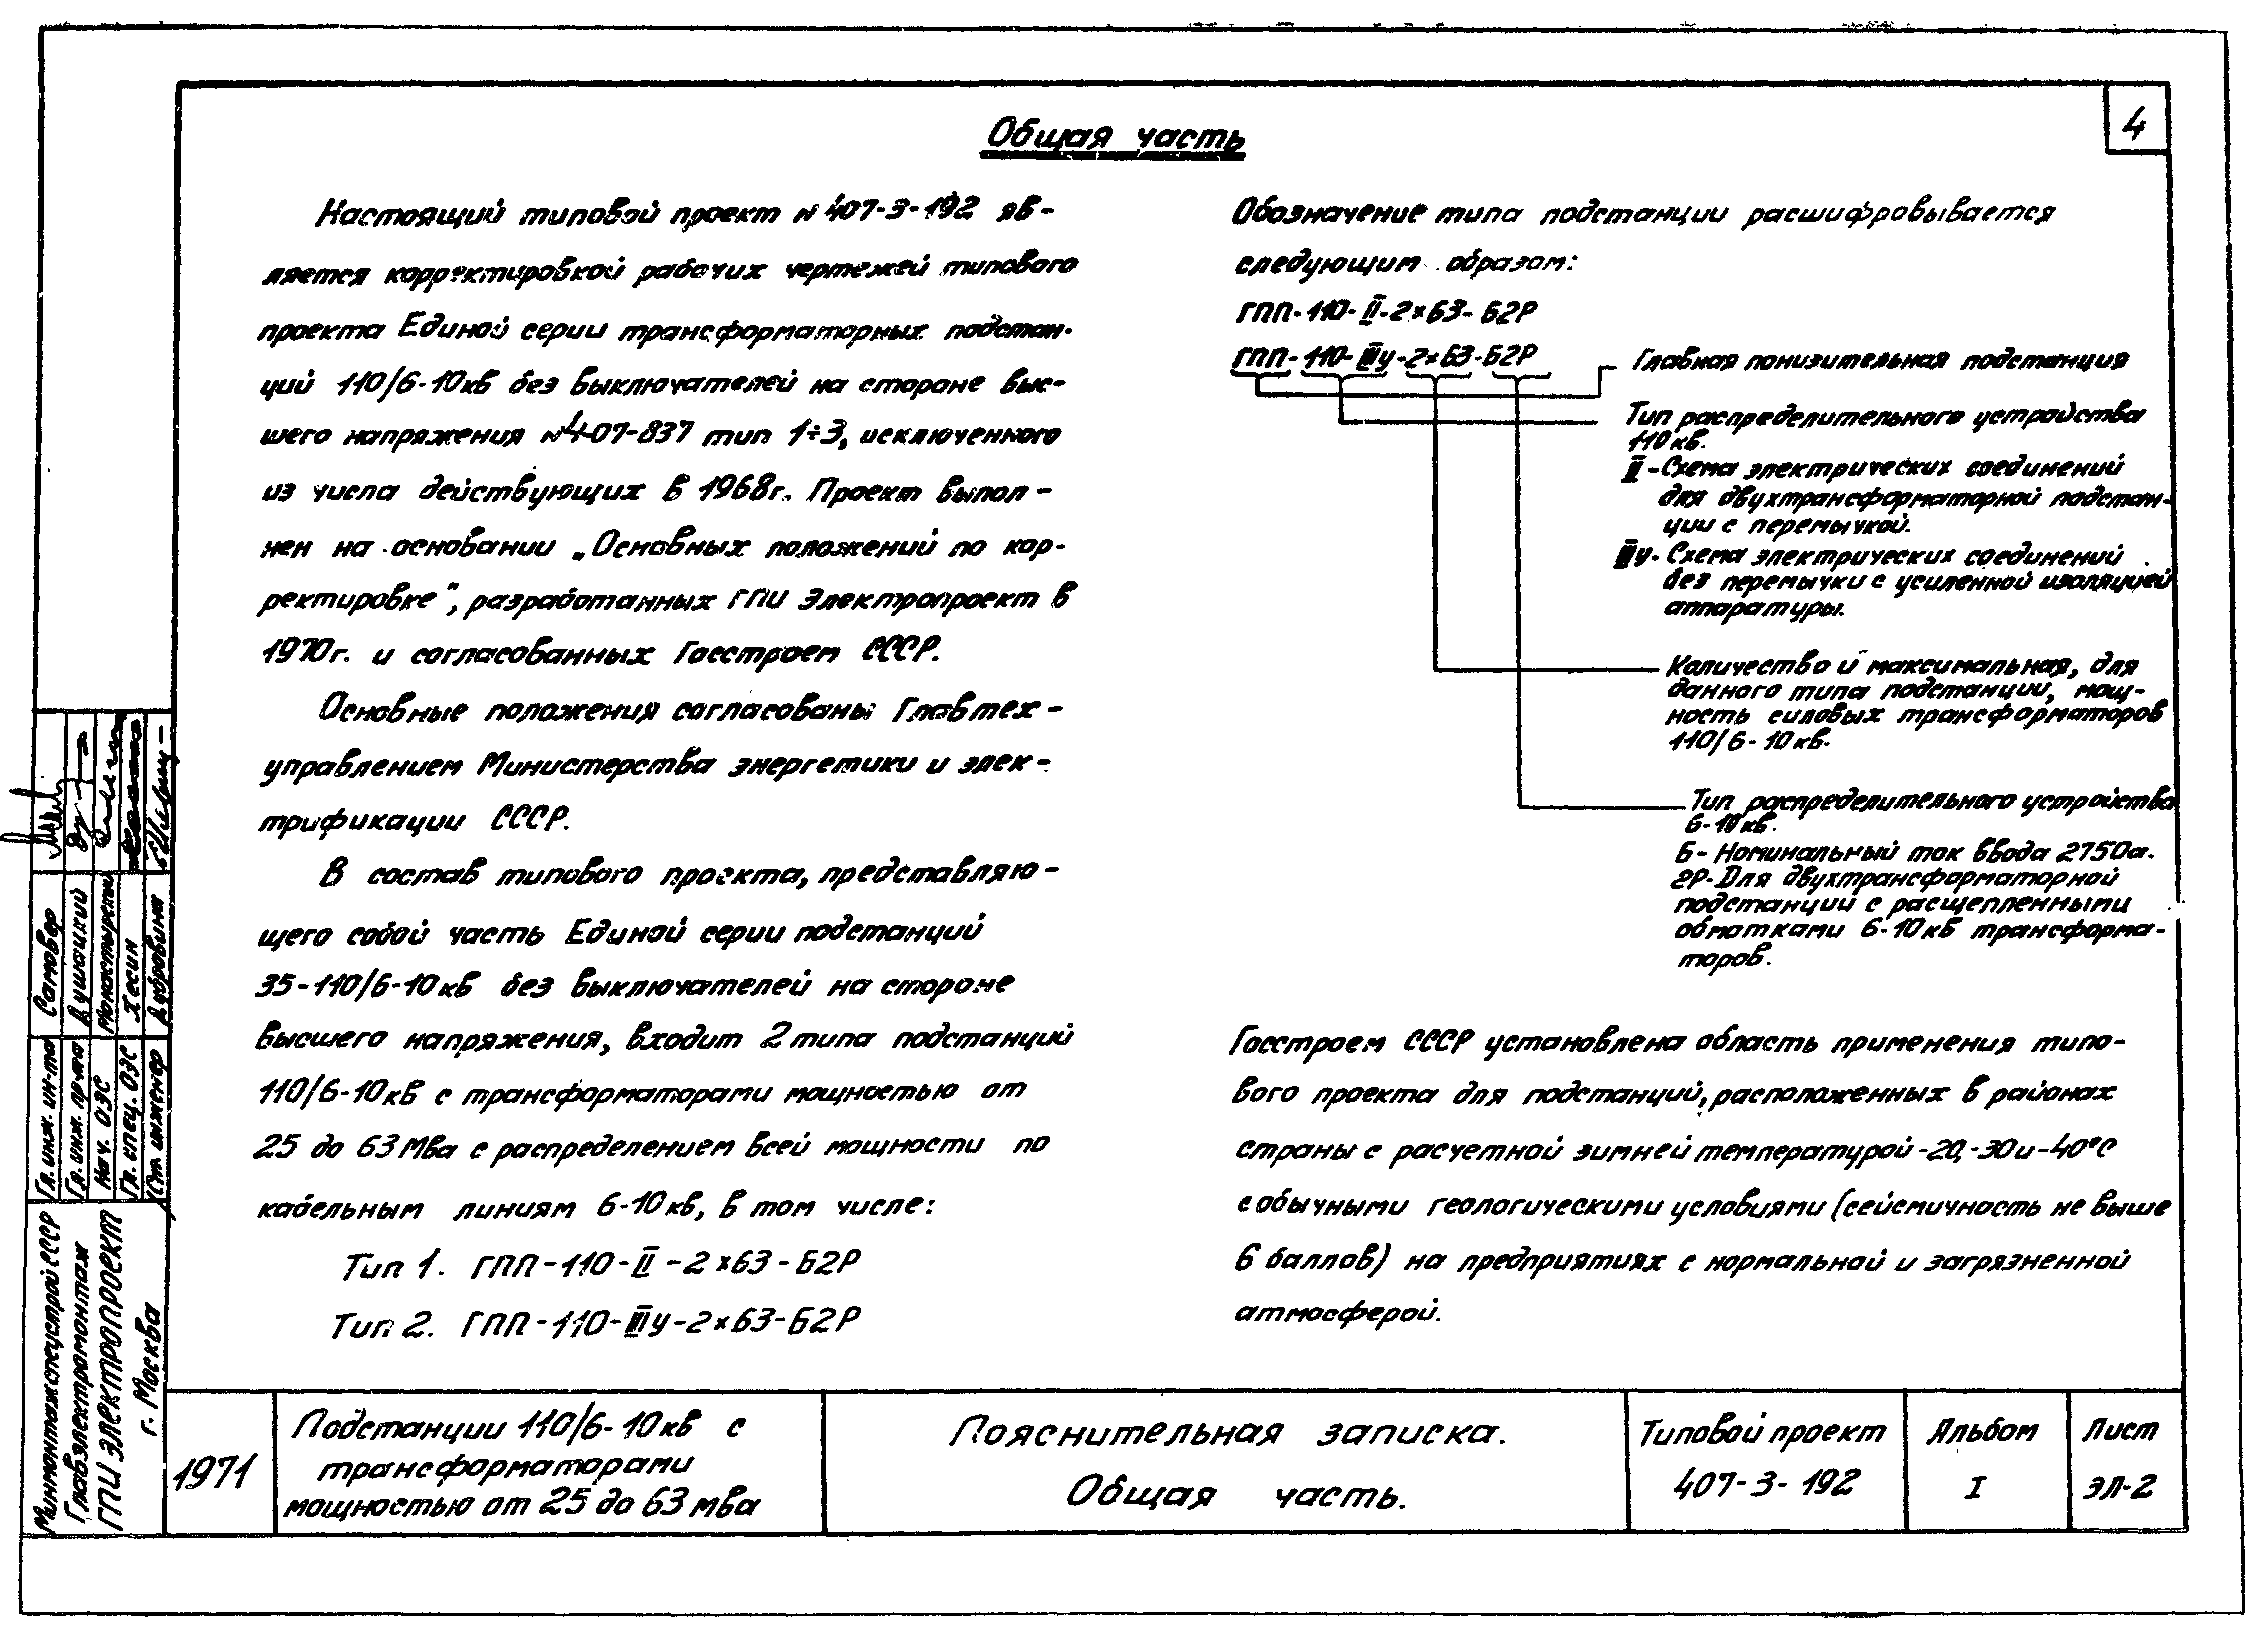 4
Общая часть
Настоящий типовой проект N 407-3-192 яв-
ляется корректировкой рабочих чертежей типового
проекта Единой серии трансформаторных подстан-
ций 110/6-10кв без выключателей на стороне выс-
шего напряжения N407-837 тип 1÷3, исключенного
из числа действующих в 1968г. Проект выпол-
нен на основании „Основных положений по кор-
ректировке", разработанных ГПИ Электропроект в
1970г. и согласованных Госстроем СССР.
Основные положения согласованы Главтех-
управлением Министерства энергетики и элек-
трификации СССР.
В состав типового проекта, представляю-
щего собой часть Единой серии подстанций
35-110/6-10кв без выключателей на стороне
высшего напряжения, входит 2 типа подстанций
110/6-10кв с трансформаторами мощностью от
25 до 63 Мва с распределением всей мощности по
кабельным линиям 6-10кв, в том числе:
Тип 1. ГПП-110-II-2×63-Б2Р
Тип 2. ГПП-110-IIIу-2×63-Б2Р
Обозначение типа подстанции расшифровывается
следующим образом:
ГПП-110-II-2×63-Б2Р
ГПП-110-IIIу-2×63-Б2Р
Главная понизительная подстанция
Тип распределительного устройства
110кв.
II-Схема электрических соединений
для двухтрансформаторной подстан-
ции с перемычкой.
IIIу-Схема электрических соединений
без перемычки с усиленной изоляцией
аппаратуры.
Количество и максимальная, для
данного типа подстанции, мощ-
ность силовых трансформаторов
110/6-10кв.
Тип распределительного устройства
6-10кв.
Б-Номинальный ток ввода 2750а.
2Р-Для двухтрансформаторной
подстанции с расщепленными
обмотками 6-10кв трансформа-
торов.
Госстроем СССР установлена область применения типо-
вого проекта для подстанций, расположенных в районах
страны с расчетной зимней температурой -20, -30 и -40°С
с обычными геологическими условиями (сейсмичность не выше
6 баллов) на предприятиях с нормальной и загрязненной
атмосферой.
Гл. инж. ин-та Самовер
Гл. инж. пр-та
Нач. ОЭС Монастырский
Гл. спец. ОЭС Хесин
Ст. инженер Дубровина
Минмонтажспецстрой СССР
Главэлектромонтаж
ГПИ ЭЛЕКТРОПРОЕКТ
г. Москва
1971
Подстанции 110/6-10кв с
трансформаторами
мощностью от 25 до 63 мва
Пояснительная записка.
Общая часть.
Типовой проект
407-3-192
Альбом
I
Лист
ЭЛ-2